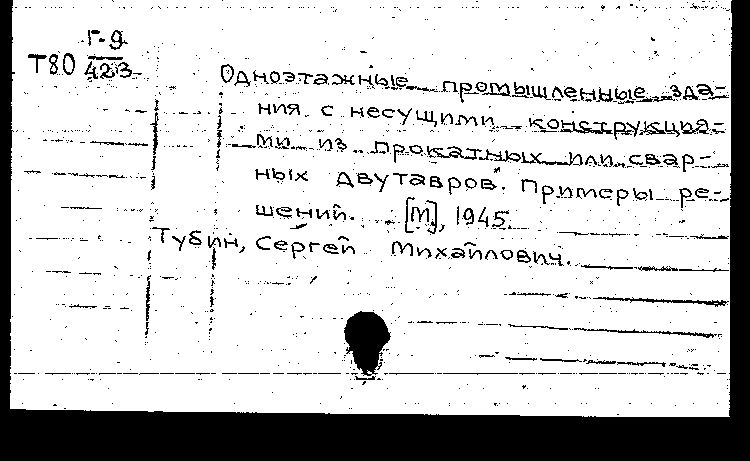 Г-9
Т80 423
Одноэтажные промышленные зда-
ния с несущими конструкция-
ми из прокатных или свар-
ных двутавров". Примеры ре-
шений. [М], 1945.
Тубин, Сергей Михайлович.